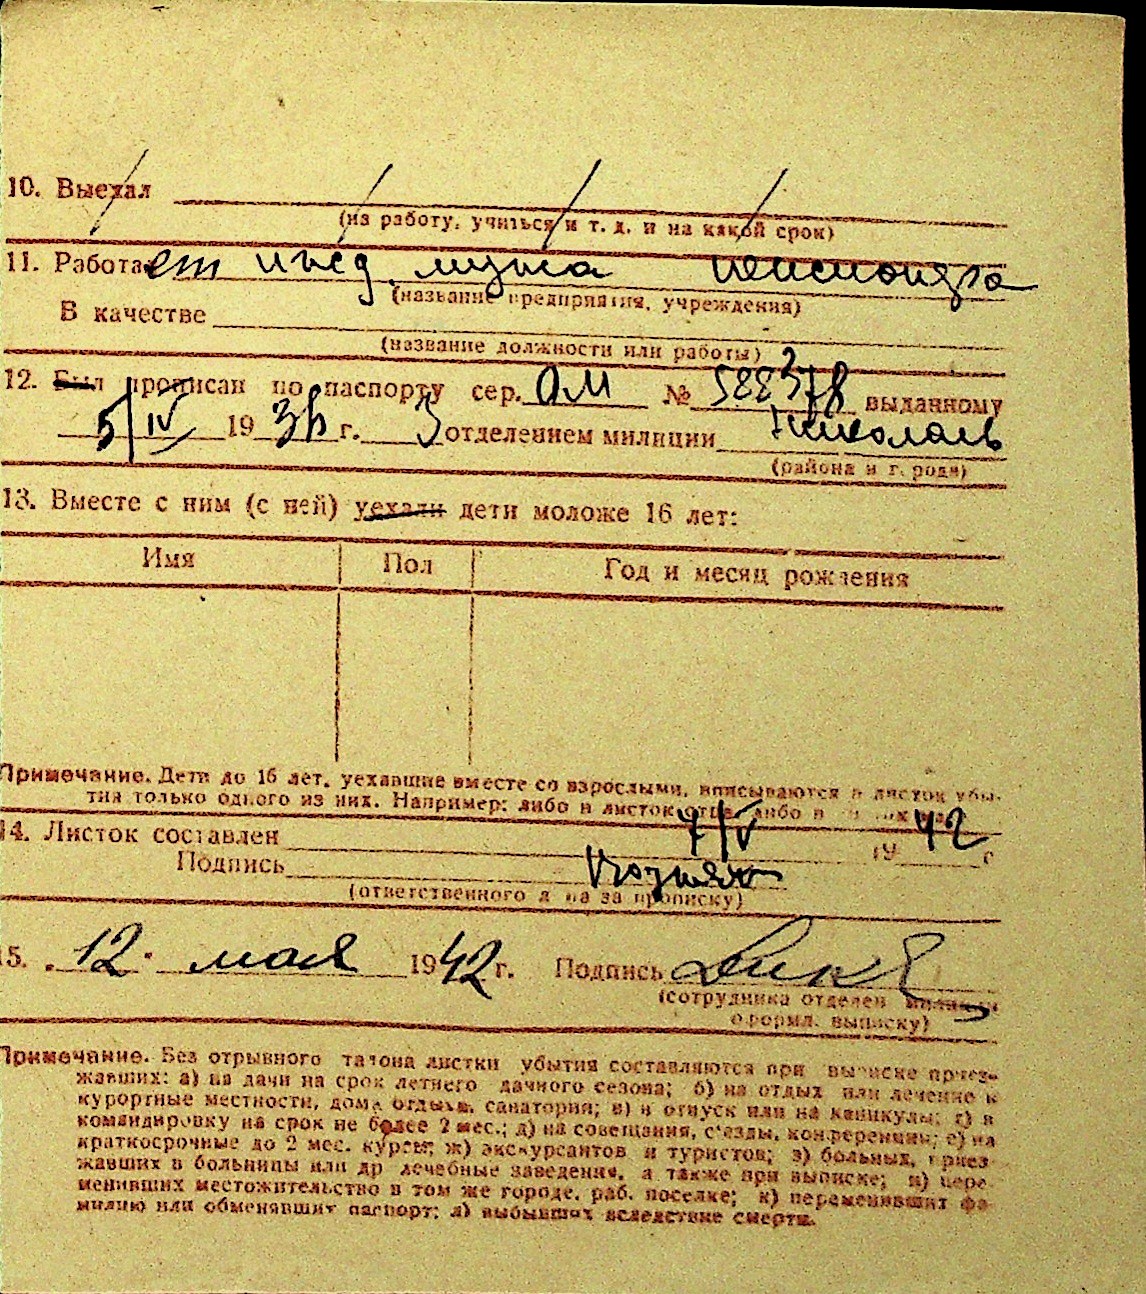 10. Выехал
(на работу, учиться и т. д. и на какой срок)
11. Работает ижд. мужа пенсионера
(название предприятия, учреждения)
В качестве
(название должности или работы)
12. Был прописан по паспорту сер. ОМ № 588378 выданному
5/IV 1936 г. 3 отделением милиции Николаев
(района и города)
13. Вместе с ним (с ней) уехали дети моложе 16 лет:
Имя Пол Год и месяц рождения
Примечание. Дети до 16 лет, уехавшие вместе со взрослыми, вписываются в листок убы-
тия только одного из них. Например: либо в листок отца, либо в
14. Листок составлен 7/V 1942 г
Подпись
(ответственного лица за прописку)
15. 12. мая 1942 г. Подпись
(сотрудника отделен. милиции
оформл. выписку)
Примечание. Без отрывного талона листки убытия составляются при выписке приез-
жавших: а) на дачи на срок летнего дачного сезона; б) на отдых или лечение в
курортные местности, дома отдыха, санатории; в) в отпуск или на каникулы; г) в
командировку на срок не более 2 мес.; д) на совещания, съезды, конференции; е) на
краткосрочные до 2 мес. курсы; ж) экскурсантов и туристов; з) больных, приез-
жавших в больницы или др лечебные заведения, а также при выписке; и) пере-
менивших местожительство в том же городе, раб. поселке; к) переменивших фа-
милию или обменявших паспорт; л) выбывших вследствие смерти.